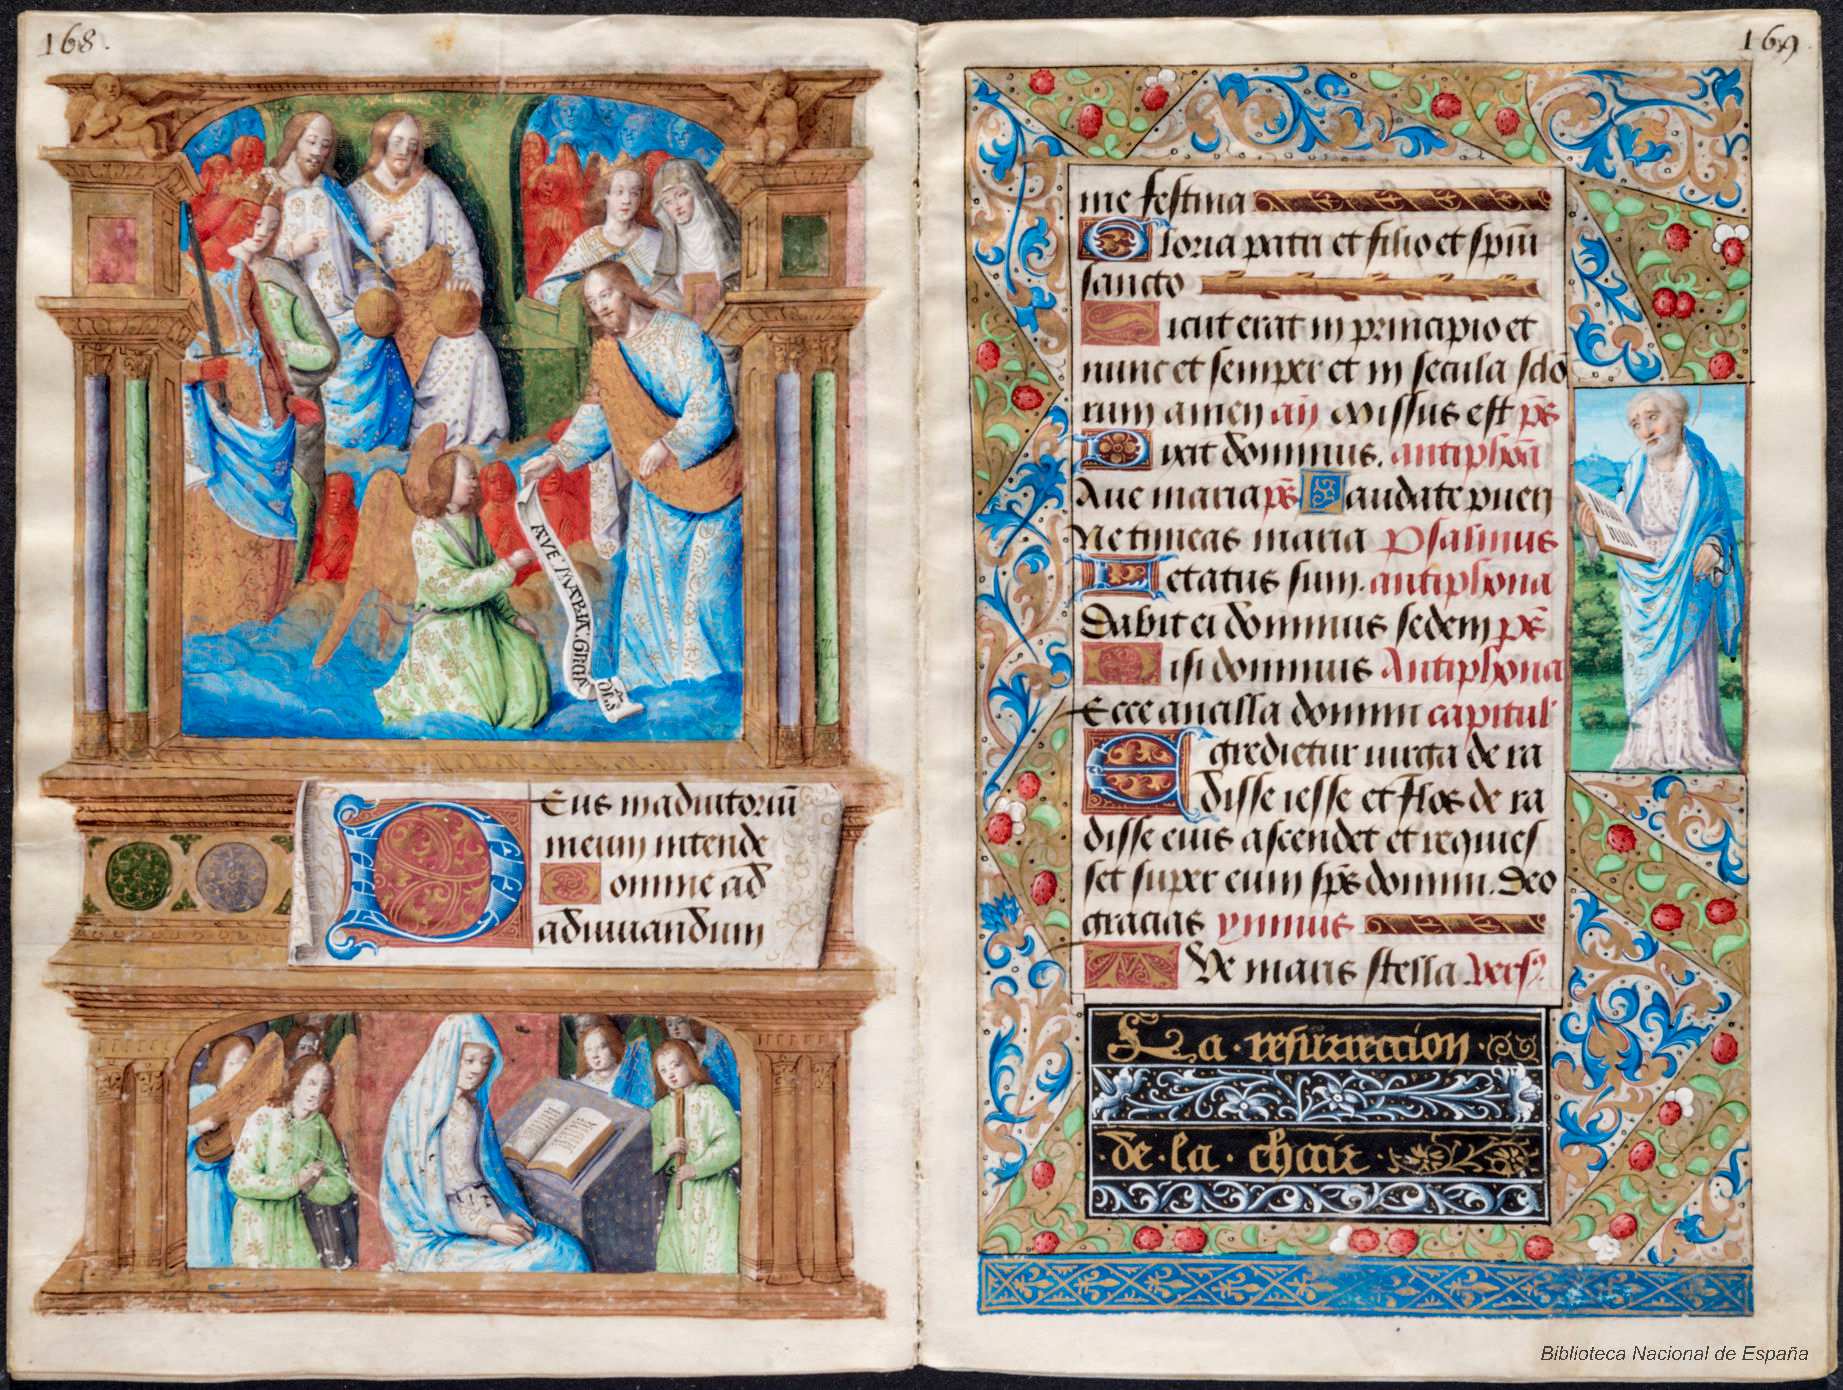 168.
AVE MARIA. GRACIA
DNS
Eus in adiutoriū
meum intende
Domine ad
adiuuandum
169.
me festina
Gloria patri et filio et spiū
sancto
Sicut erat in principio et
nunc et semper et in secula sclo
rum amen añ Missus est ps
Dixit dominus. antiphoā
Aue maria ps Laudate pueri
Ne timeas maria Psalmus
Letatus sum. antiphona
Dabit ei dominus sedem ps
Nisi dominus Antiphona
Ecce ancilla domini capitul'
Egredietur uirga de ra
disse iesse et flos de ra
disse eius ascendet et requies
set super eum sps domini. Deo
gracias ymnus
AVe maris stella. Vers
La · resurreccion ·
· de · la · chair ·
Biblioteca Nacional de España